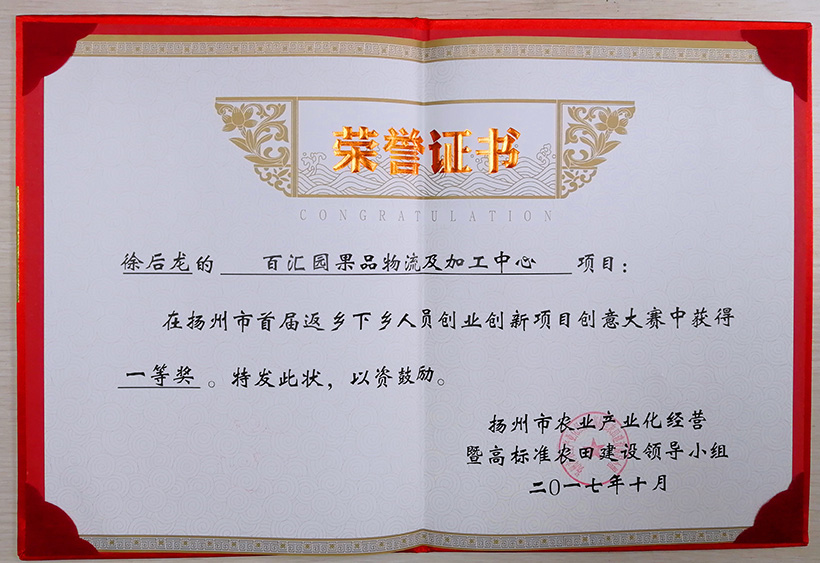 荣誉证书
CONGRATULATION
徐后龙的 百汇园果品物流及加工中心 项目：
在扬州市首届返乡下乡人员创业创新项目创意大赛中获得
一等奖。特发此状，以资鼓励。
扬州市农业产业化经营
暨高标准农田建设领导小组
二〇一七年十月